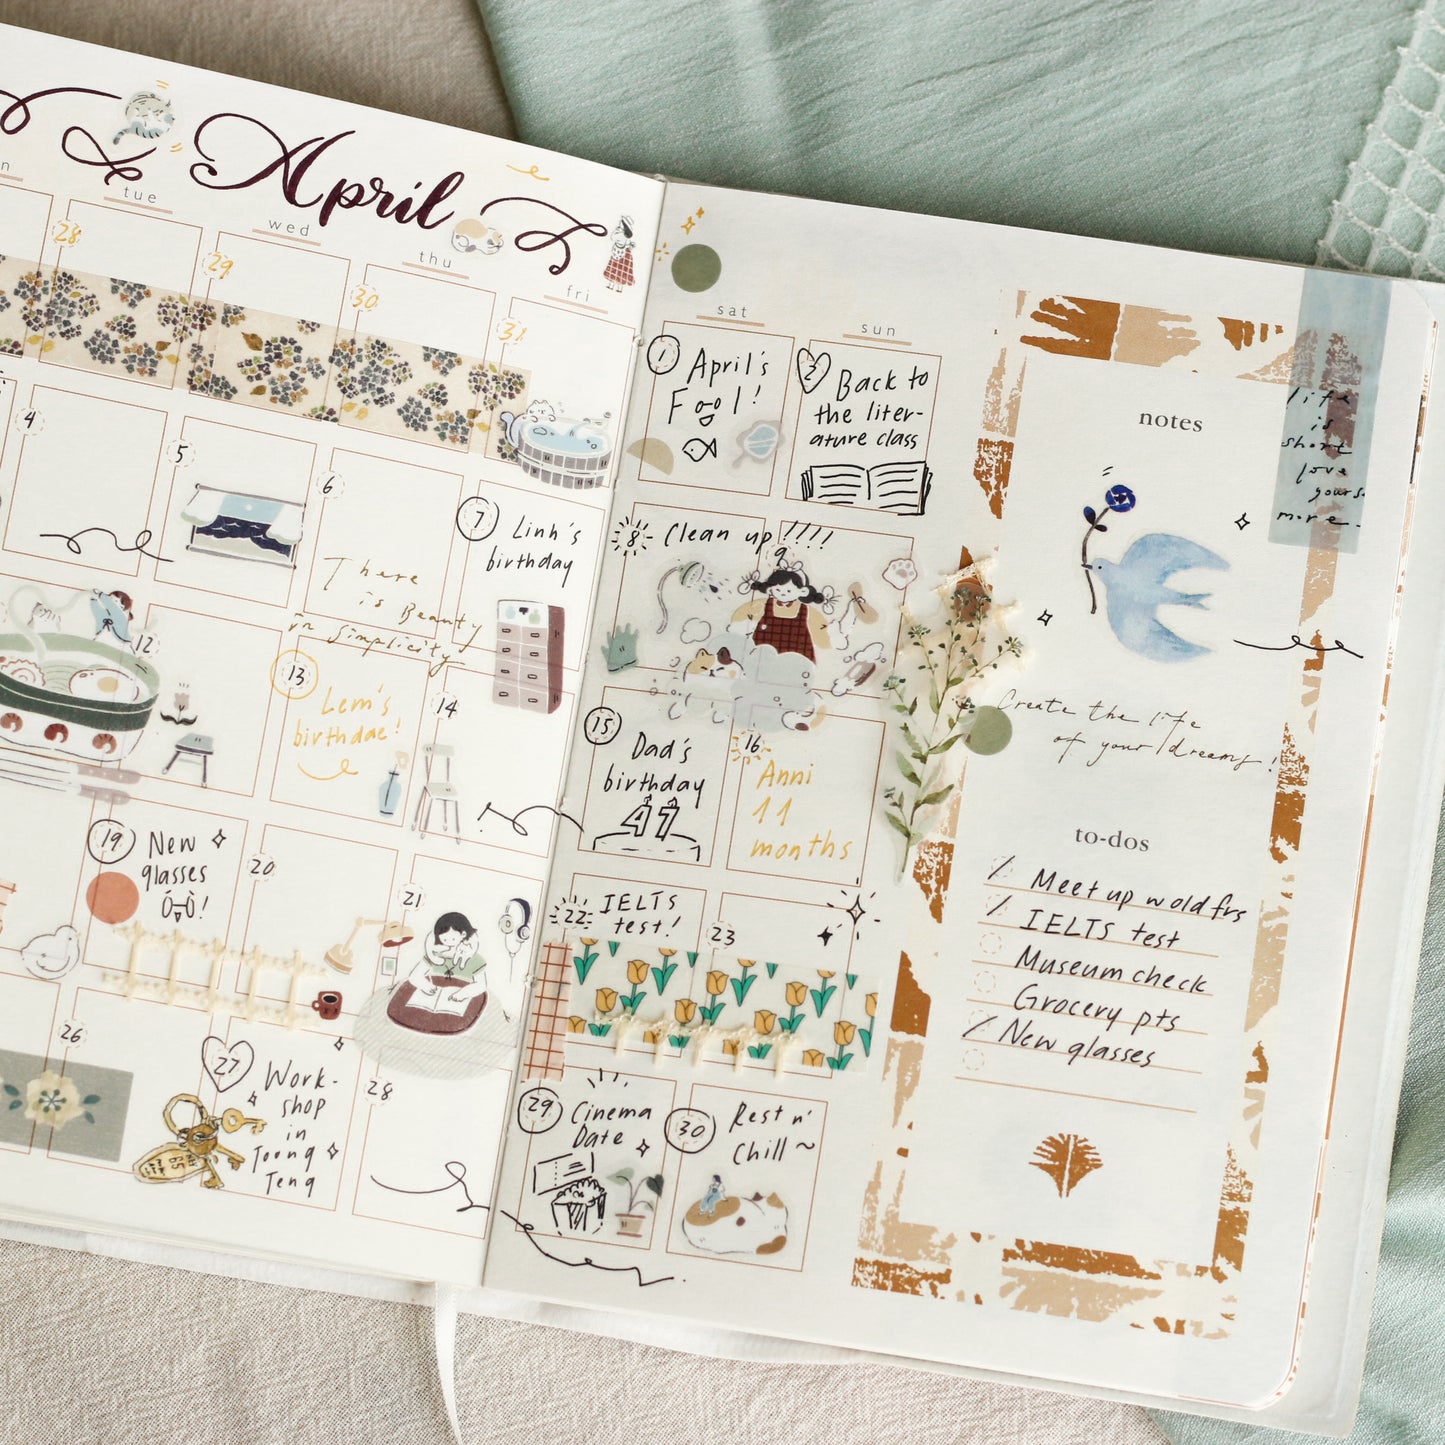 April
n
tue
wed
thu
fri
sat
sun
28
29
30
31
1
April's
Fool!
2
Back to
the liter-
ature class
4
5
6
There
is Beauty
in simplicity
7
Linh's
birthday
8
Clean up !!!!
9
12
13
Lem's
birthdae!
14
15
Dad's
birthday
47
16
Anni
11
months
19
New
glasses
20
21
22
IELTS
test!
23
26
27
Work-
shop
in
Toong
Teng
28
29
Cinema
Date
30
Rest n'
Chill ~
notes
life
is
short
love
yourse
more.
Create the life
of your dreams!
to-dos
Meet up w old frs
IELTS test
Museum check
Grocery pts
New glasses